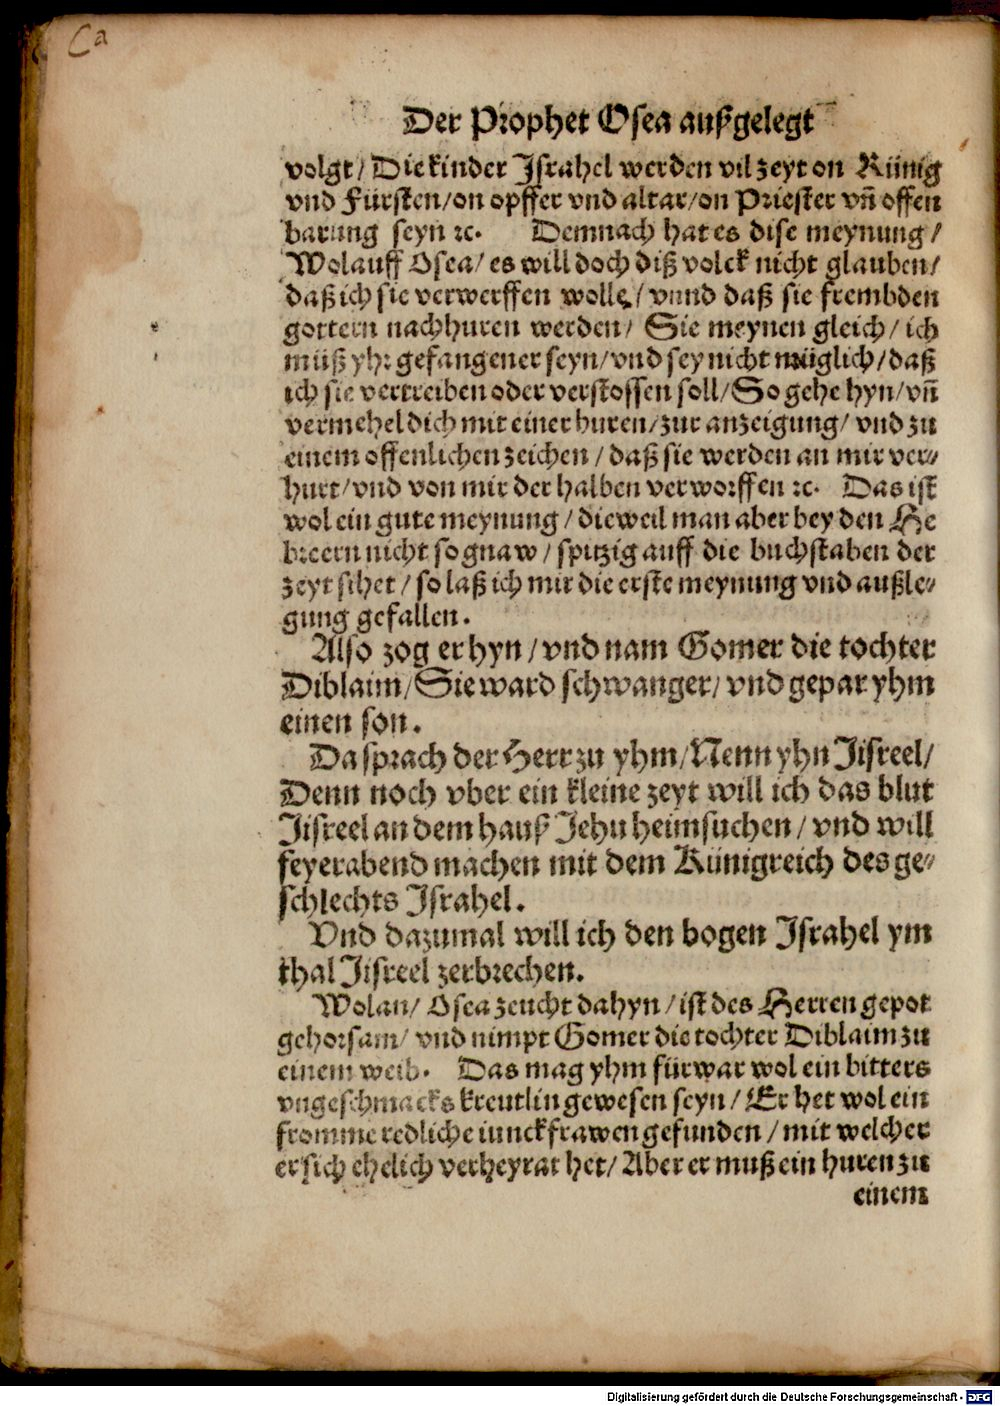 Ca
Der Prophet Osea außgelegt
volgt/ Die kinder Israhel werden vil zeyt on Künig
vnd Fürsten/on opffer vnd altar/on Priester vñ offen
barung seyn ꝛc. Demnach hat es dise meynung/
Wolauff Osea/ es will doch diß volck nicht glauben/
daß ich sie verwerffen wolle/ vnnd daß sie frembden
gottern nachhuren werden/ Sie meynen gleich/ ich
müß yhr gefangener seyn/vnd sey nicht müglich/daß
ich sie vertreiben oder verstossen soll/So gehe hyn/vñ
vermehel dich mit einer huren/zur anzeigung/ vnd zu
einem offenlichen zeichen/ daß sie werden an mir ver⸗
hurt/vnd von mir der halben verworffen ꝛc. Das ist
wol ein gute meynung/ dieweil man aber bey den He
breern nicht so gnaw/ spitzig auff die buchstaben der
zeyt sihet/ so laß ich mir die erste meynung vnd außle⸗
gung gefallen.
Also zog er hyn/vnd nam Gomer die tochter
Diblaim/Sie ward schwanger/ vnd gepar yhm
einen son.
Da sprach der Herr zu yhm/Nenn yhn Jisreel/
Denn noch vber ein kleine zeyt will ich das blut
Jisreel an dem hauß Jehu heimsuchen/ vnd will
feyerabend machen mit dem Künigreich des ge⸗
schlechts Israhel.
Vnd dazumal will ich den bogen Israhel ym
thal Jisreel zerbrechen.
Wolan/ Osea zeucht dahyn/ist des Herren gepot
gehorsam/ vnd nimpt Gomer die tochter Diblaim zu
einem weib. Das mag yhm fürwar wol ein bitters
vngeschmacks kreutlin gewesen seyn/ Er het wol ein
fromme redliche iunckfrawen gefunden/mit welcher
er sich ehelich verheyrat het/ Aber er muß ein huren zu
einem
Digitalisierung gefördert durch die Deutsche Forschungsgemeinschaft - DFG